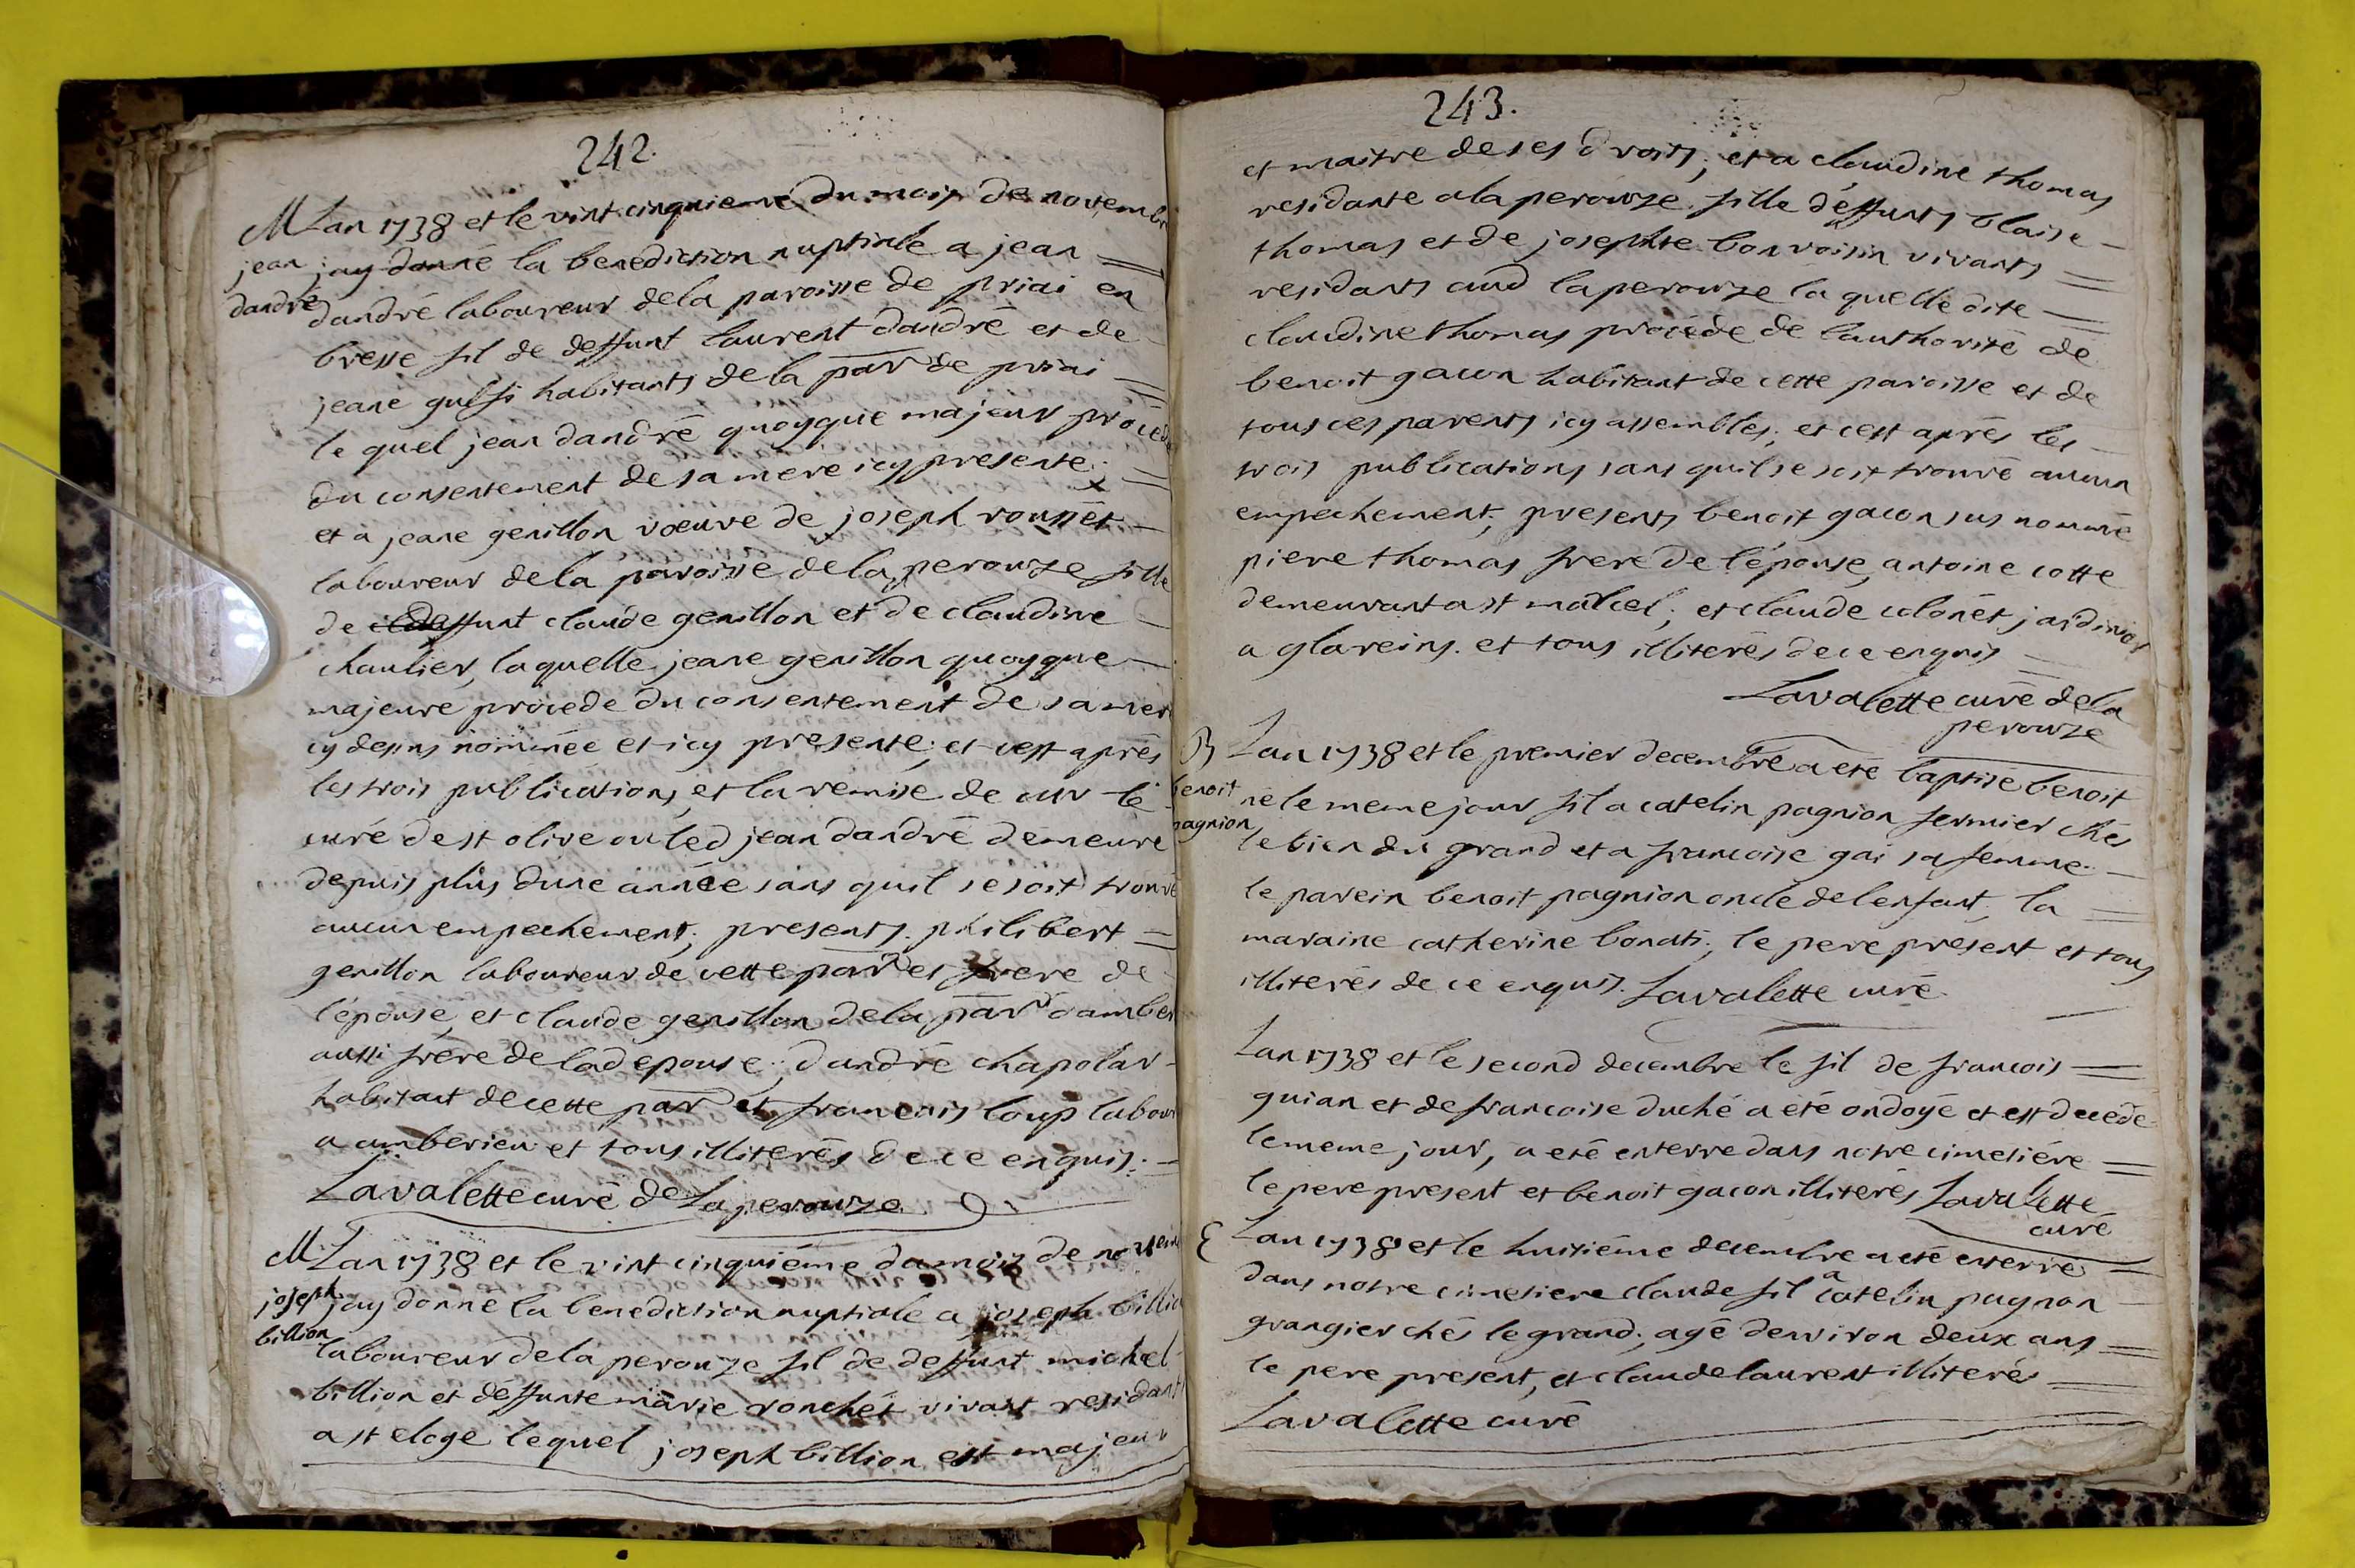 242.
M Lan 1738 et le vint cinquieme du mois de novembre
jean jay donné la benediction nuptiale a jean
dandré dandré laboureur dela paroisse de priai en
bresse fil de deffunt laurent dandré et de
jeane guessi habitants dela par de priai
le quel jean dandré quoyque majeur procede
du consentement de sa mere icy presente;
et a jeane genillon vœuve de joseph rousset
laboureur dela paroisse dela perouze fille
de deffunt claude genillon et de claudine
chaulier, laquelle jeane genillon quoyque
majeure procede du consentement de sa mere
cy dessus nommée et icy presente; et cest aprés
les trois publications et la remise de mr le
curé de st olive ou led jean dandré demeure
depuis plus dune année sans quil se soit trouvé
aucun empechement; presents philibert
genillon laboureur de cette par et frere de
l'épouse, et claude genillon dela par damber
aussi frère de lad epouse; dandré chapolar
habitant de cette par et francois loup labour
a amberieu et tous illiterés de ce enquis.
Lavalette curé de Laperouze
M Lan 1738 et le vint cinquiéme du mois de novem
joseph jay donne la benediction nuptiale a joseph billion
billion laboureur dela perouze fil de deffunt michel
billion et déffunte marie ronchét vivant residant
a st eloge lequel joseph billion est majeur
243.
et maitre de ses droits; et a claudine thomas
residante a la perouze fille déffunts blaise
thomas et de josephte bonvoisin vivants
residants aud laperouze la quelle dite
claudine thomas procéde de lauthorité de
benoit gacon habitant de cette paroisse et de
tous ces parents icy assemblés; et cest aprés les
trois publications sans quil se soit trouvé aucun
empechement; presents benoit gacon sus nommé
piere thomas frere de l'épouse, antoine cotte
demeurant a st marcel; et claude colonét jardinier
a glareins. et tous illiterés de ce enquis
Lavalette curé dela
perouze
B Lan 1738 et le premier decembre a eté baptisé benoit
benoit né le meme jour fil a catelin pagnion fermier chés
pagnion le bien du grand et a francoise gai sa femme
le parein benoit pagnion oncle de lenfant, la
maraine catherine bonati; le pere present et tous
illiterés de ce enquis. Lavalette curé
Lan 1738 et le second decembre le fil de francois
guian et de francoise duché a été ondoyé et est decedé
le meme jour, a eté enterre dans notre cimetiére
le pere present et benoit gacon illiterés Lavalette
curé
E Lan 1738 et le huitiéme decembre a eté enterré
dans notre cimetiere claude fil a catelin pagnon
grangier chés le grand; agé denviron deux ans
le pere present, et claude laurent illiterés
Lavalette curé